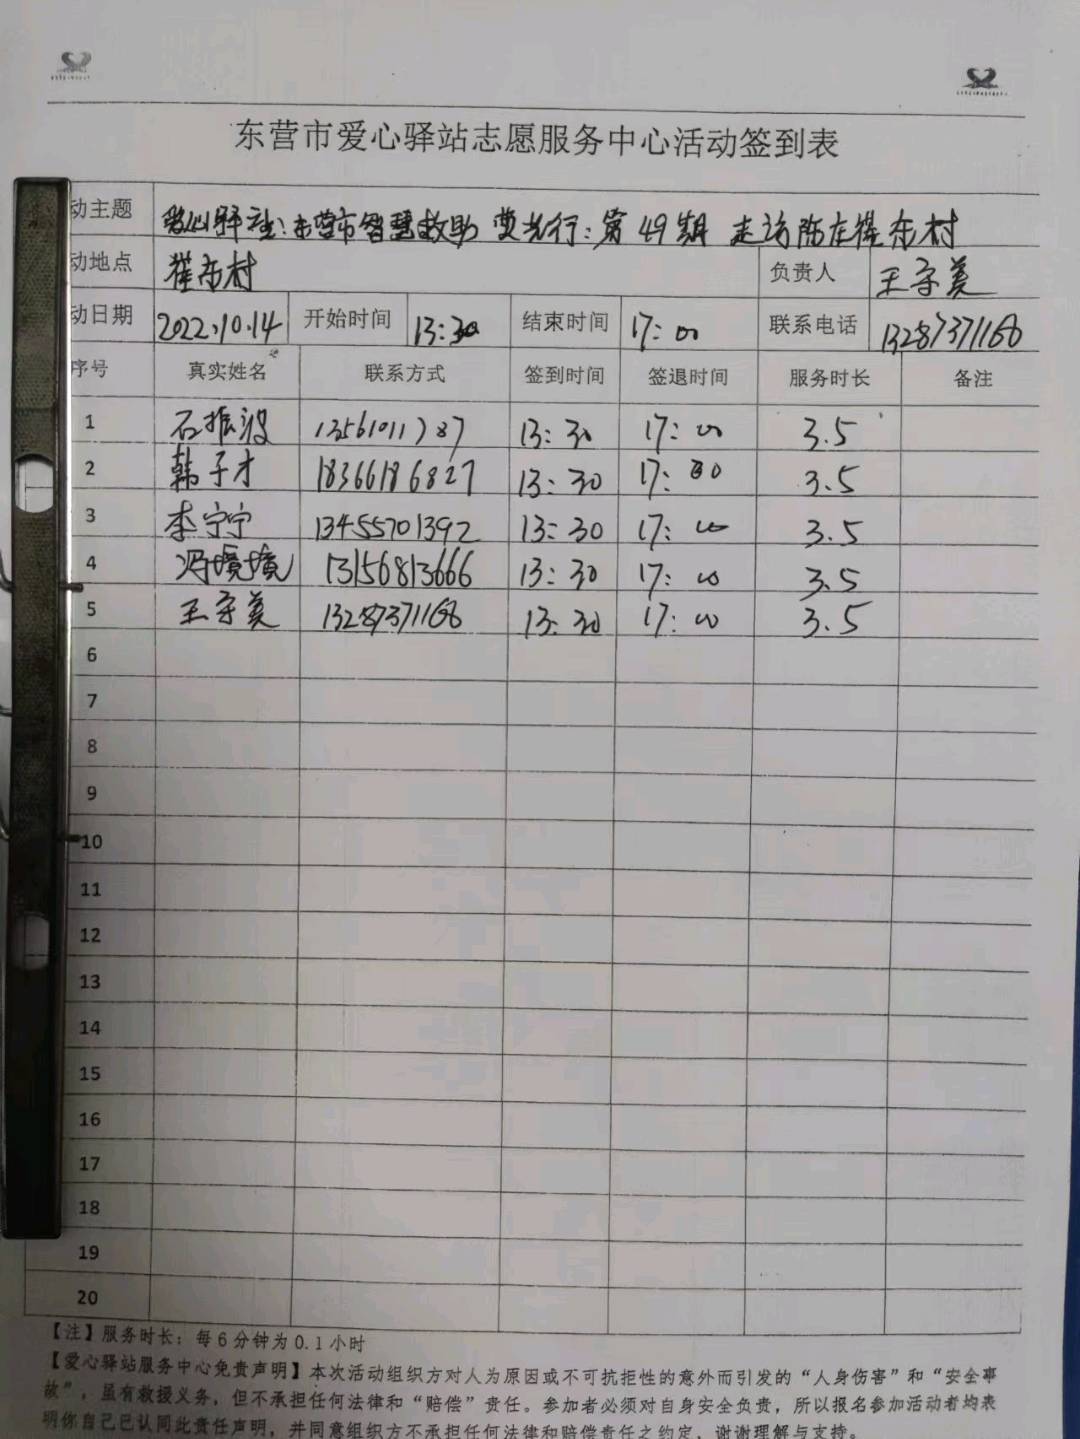 东营市爱心驿站志愿服务中心活动签到表
动主题 爱心驿站:东营市智慧救助 爱先行:第49期 走访陈庄崔东村
动地点 崔东村 负责人 王守美
动日期 2022.10.14 开始时间 13:30 结束时间 17:00 联系电话 13287371168
序号 真实姓名 联系方式 签到时间 签退时间 服务时长 备注
1 石振波 13561011787 13:30 17:00 3.5
2 韩子才 18366186827 13:30 17:00 3.5
3 李宁宁 13455701392 13:30 17:00 3.5
4 冯境境 13156813666 13:30 17:00 3.5
5 王守美 13287371168 13:30 17:00 3.5
6
7
8
9
10
11
12
13
14
15
16
17
18
19
20
【注】服务时长:每6分钟为0.1小时
【爱心驿站服务中心免责声明】本次活动组织方对人为原因或不可抗拒性的意外而引发的“人身伤害”和“安全事
故”,虽有救援义务,但不承担任何法律和“赔偿”责任。参加者必须对自身安全负责,所以报名参加活动者均表
明你自己已认同此责任声明,并同意组织方不承担任何法律和赔偿责任之约定,谢谢理解与支持。